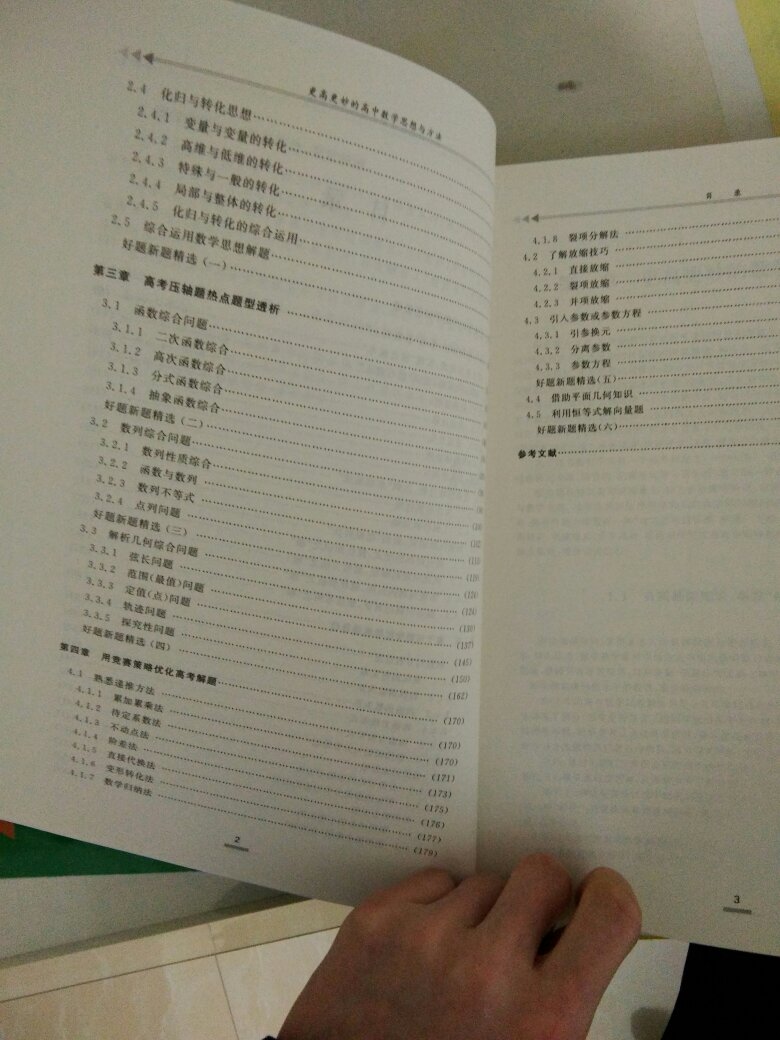 更高更妙的高中数学思想与方法
2.4 化归与转化思想
2.4.1 变量与变量的转化
2.4.2 高维与低维的转化
2.4.3 特殊与一般的转化
2.4.4 局部与整体的转化
2.4.5 化归与转化的综合运用
2.5 综合运用数学思想解题
好题新题精选(一)
第三章 高考压轴题热点题型透析
3.1 函数综合问题
3.1.1 二次函数综合
3.1.2 高次函数综合
3.1.3 分式函数综合
3.1.4 抽象函数综合
好题新题精选(二)
3.2 数列综合问题
3.2.1 数列性质综合
3.2.2 函数与数列
3.2.3 数列不等式
3.2.4 点列问题
好题新题精选(三)
3.3 解析几何综合问题
3.3.1 弦长问题
3.3.2 范围(最值)问题
3.3.3 定值(点)问题
3.3.4 轨迹问题
3.3.5 探究性问题
好题新题精选(四)
第四章 用竞赛策略优化高考解题
4.1 熟悉递推方法
4.1.1 累加累乘法 (170)
4.1.2 待定系数法 (170)
4.1.3 不动点法 (171)
4.1.4 阶差法 (173)
4.1.5 直接代换法 (175)
4.1.6 变形转化法 (176)
4.1.7 数学归纳法
2
目 录
4.1.8 裂项分解法
4.2 了解放缩技巧
4.2.1 直接放缩
4.2.2 裂项放缩
4.2.3 并项放缩
4.3 引入参数或参数方程
4.3.1 引参换元
4.3.2 分离参数
4.3.3 参数方程
好题新题精选(五)
4.4 借助平面几何知识
4.5 利用恒等式解向量题
好题新题精选(六)
参考文献
3